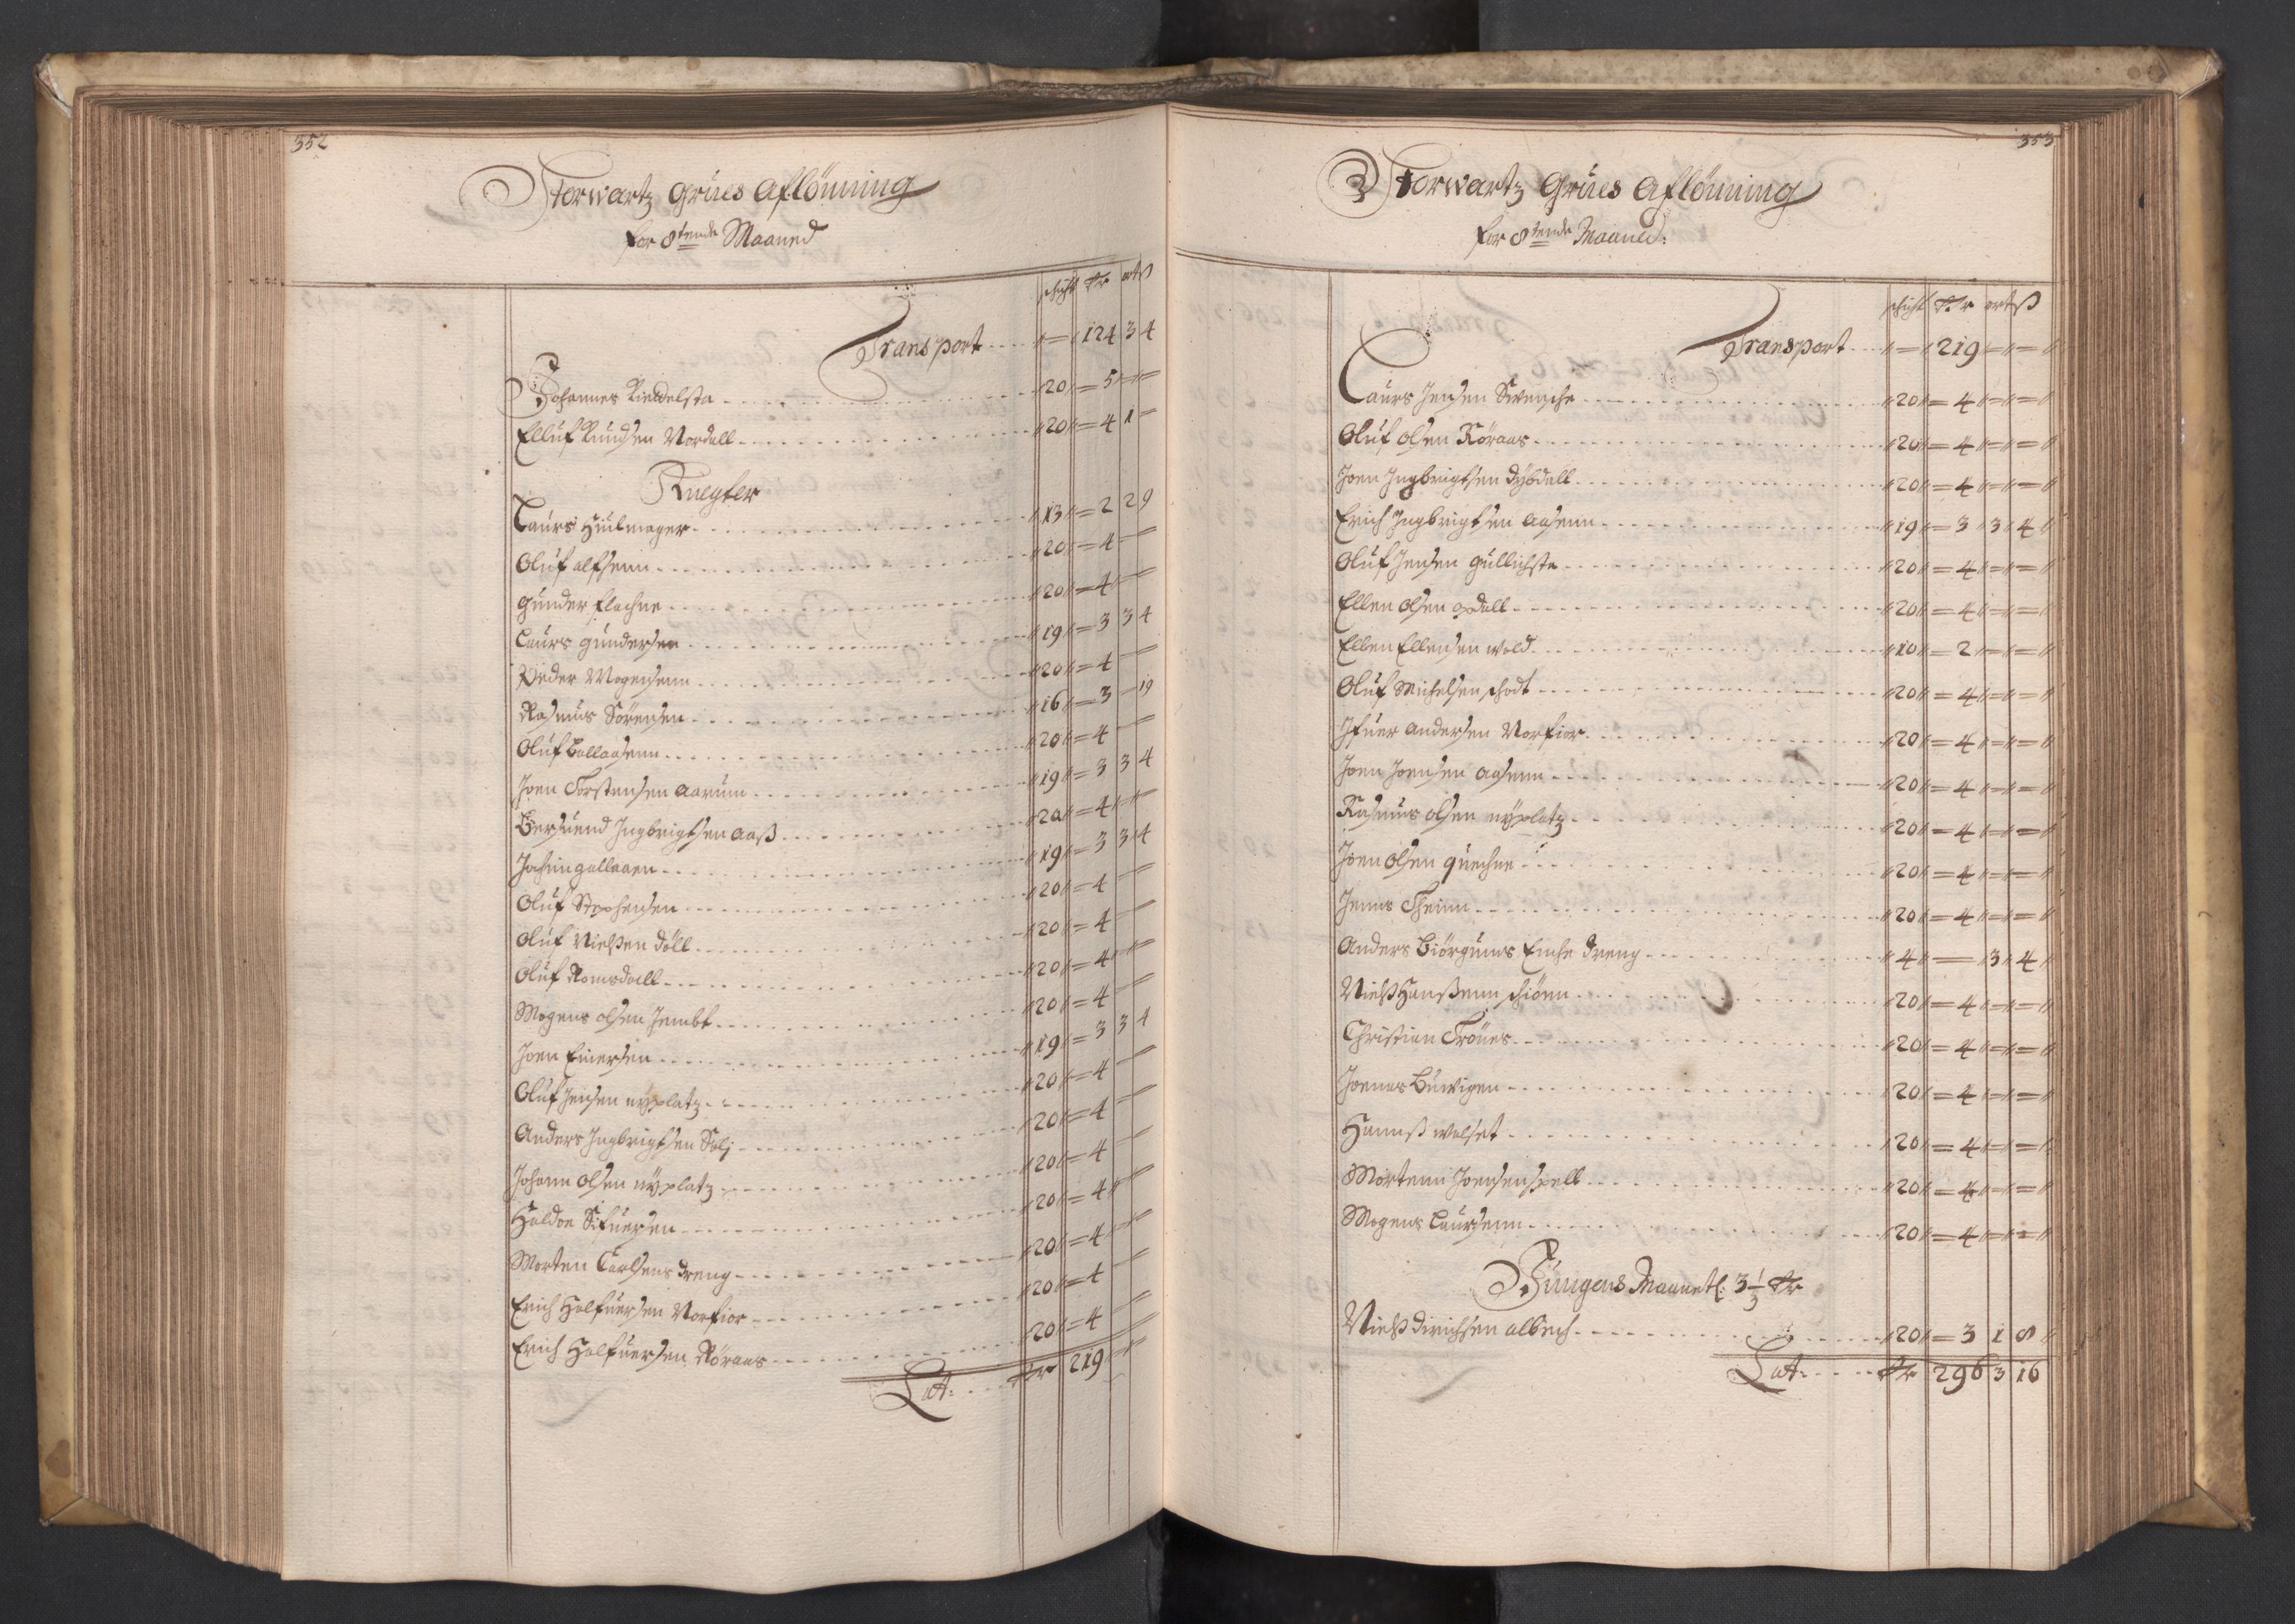 352
Storwartz Grues Aflönning
for 8tende Maaned
schicht Rdr ort ß
Transport - 124 3 4
Johannes Rieddelsta 20 5
Elluf Knudsen Nordall 20 4 1
Knegter
Laurs Hiulmager 13 2 2 9
Oluf alfsenn 20 4
Gunder flachne 20 4
Laurs Gundersen 19 3 3 4
Peder Mogensenn 20 4
Rasmus Sörensen 16 3 - 19
Oluf Ballaasenn 20 4
Joen Torstensen Aarum 19 3 3 4
Bersuend Ingbrigtsen Aaß 20 4
Jochim gallaaen 19 3 3 4
Oluf Stephensen 20 4
Oluf Nielsen döll 20 4
Oluf Romsdall 20 4
Mogens olsen Jembt 20 4
Joen Einersen 19 3 3 4
Oluf Jensen nÿplatz 20 4
Anders Ingbrigtsen Selj 20 4
Johann olsen nÿplatz 20 4
Haldoe Sifuersen 20 4
Morten Carlsens dreng 20 4
Erich Halfuersen Norfior 20 4
Erich Halfuersen Röraas 20 4
Lat: Rdr 219
353
Storwartz Grues Aflönning
for 8tende Maaned:
schicht Rdr ort ß
Transport - 219 - -
Laurs Jensen Swensche 20 4
Oluf olsen Röraas 20 4
Joen Ingbrigtsen dybdall 20 4
Erich Ingbrigtsen aasenn 19 3 3 4
Oluf Jensen gullichsta 20 4
Ellen olsen opdall 20 4
Ellen Ellensen wold 10 2
Oluf Michelsen schodt 20 4
Ifuer Andersen Norfior 20 4
Joen Joensen aasenn 20 4
Rasmus olsen nÿplatz 20 4
Joen olsen quechne 20 4
Jenns Theinn 20 4
Anders Biörgums Enche dreng 4 - 3 4
Nielß Hanßenn schiönn 20 4
Christian Tröner 20 4
Joenas Buwigen 20 4
Hannß wolset 20 4
Mortenn Joensen spell 20 4
Mogens Laursenn 20 4
Jungens Maanetl: 3 1/3 Rdr
Nielß dirichsen albech 20 3 1 8
Lat: Rdr 296 3 16